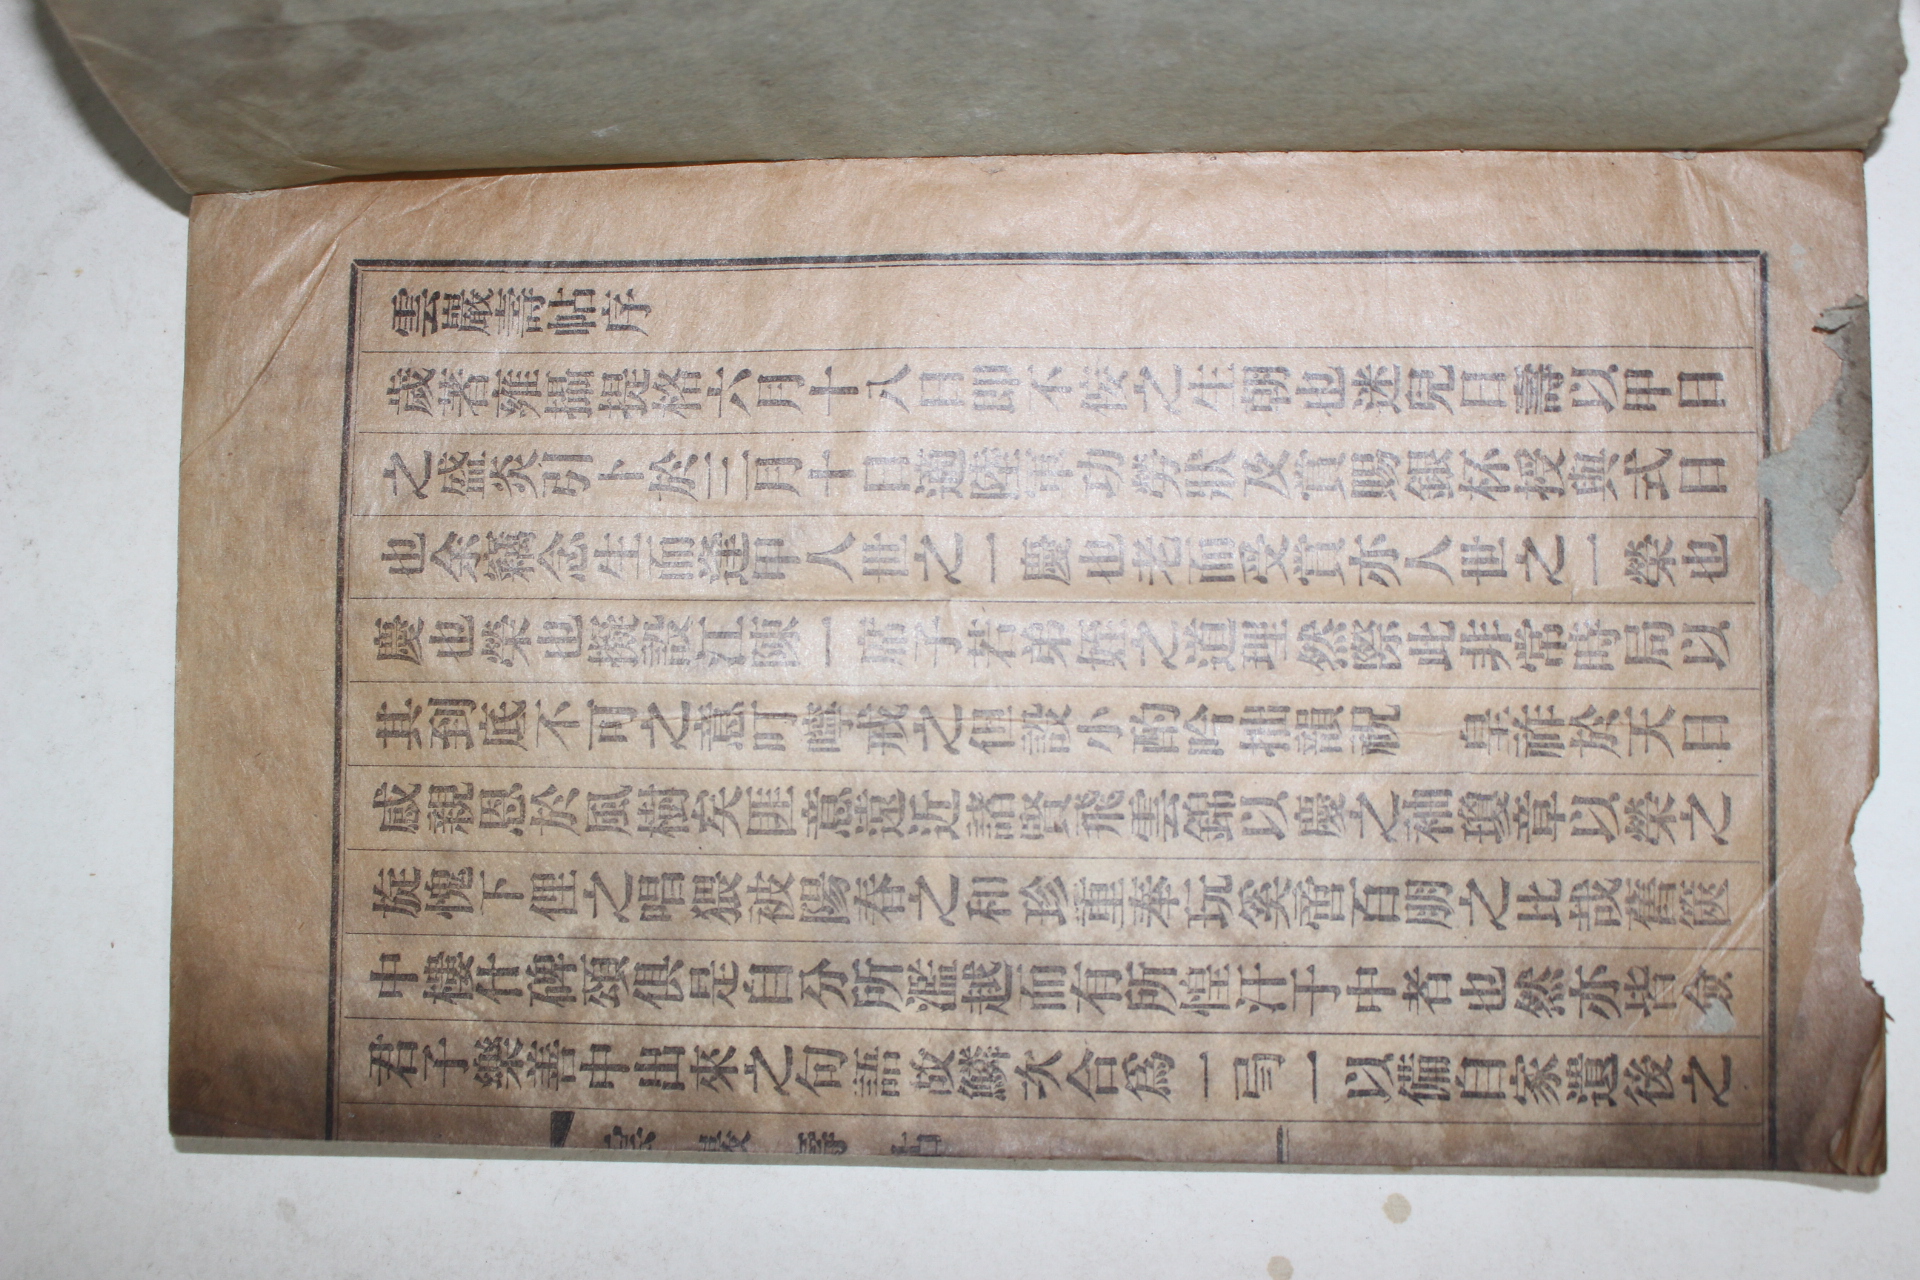 雲巖壽帖序
歲著雍攝提格六月十八日卽不佞之生朝也迷兒日壽以甲日
之盛矣劭卜於三月十日適陸軍功勞狀及賞賜銀杯授與式日
也余竊念生而逢甲人世之一慶也老而受賞亦人世之一榮也
慶也榮也擬設江陵一席子若弟姪之道理然際此非常時局以
其到底不可之意叮嚀戒之但設小酌吟拙韻祝 皇祚於天日
感親恩於風樹矣匪意遠近諸賢飛雲錦以慶之和瓊章以榮之
旋愧下俚之唱猥被陽春之和珍重奉玩奚啻百朋之比哉舊篋
中樓什碑頌俱是自分所濫越而有所惶汗于中者也然亦皆僉
君子樂善中出來之句語故鱗次合爲一弓一以備自家遺後之
雲巖壽帖